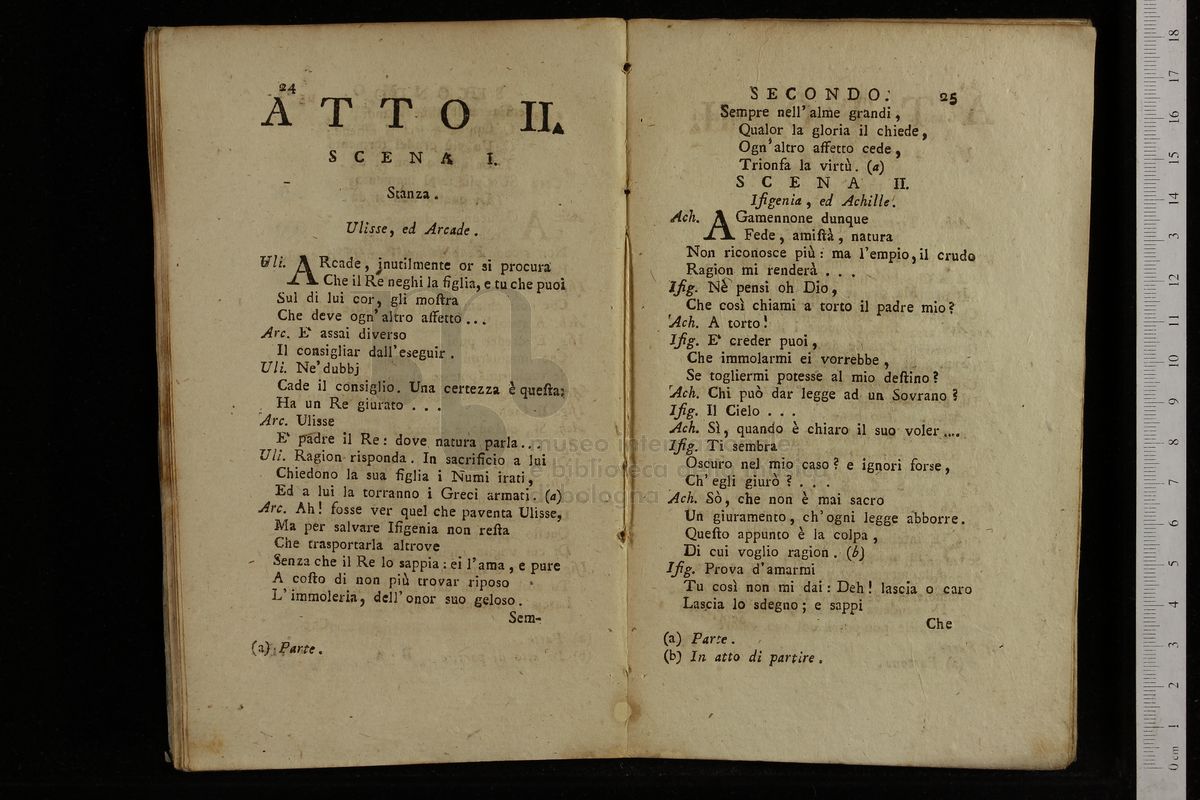 24
ATTO II.
SCENA I.
Stanza.
Ulisse, ed Arcade.
Uli. ARcade, jnutilmente or si procura
Che il Re neghi la figlia, e tu che puoi
Sul di lui cor, gli moſtra
Che deve ogn'altro affetto...
Arc. E' assai diverso
Il consigliar dall'eseguir.
Uli. Ne'dubbj
Cade il consiglio. Una certezza è queſta:
Ha un Re giurato . . .
Arc. Ulisse
E' padre il Re: dove natura parla...
Uli. Ragion risponda. In sacrificio a lui
Chiedono la sua figlia i Numi irati,
Ed a lui la torranno i Greci armati. (a)
Arc. Ah! fosse ver quel che paventa Ulisse,
Ma per salvare Ifigenia non reſta
Che trasportarla altrove
Senza che il Re lo sappia: ei l'ama, e pure
A coſto di non più trovar riposo
L'immoleria, dell'onor suo geloso.
Sem-
(a) Parte.
SECONDO. 25
Sempre nell'alme grandi,
Qualor la gloria il chiede,
Ogn'altro affetto cede,
Trionfa la virtù. (a)
SCENA II.
Ifigenia, ed Achille.
Ach. AGamennone dunque
Fede, amiſtà, natura
Non riconosce più: ma l'empio, il crudo
Ragion mi renderà . . .
Ifig. Nè pensi oh Dio,
Che così chiami a torto il padre mio?
Ach. A torto!
Ifig. E' creder puoi,
Che immolarmi ei vorrebbe,
Se togliermi potesse al mio deſtino?
Ach. Chi può dar legge ad un Sovrano?
Ifig. Il Cielo . . .
Ach. Sì, quando è chiaro il suo voler....
Ifig. Ti sembra
Oscuro nel mio caso? e ignori forse,
Ch'egli giurò? . . .
Ach. Sò, che non è mai sacro
Un giuramento, ch'ogni legge abborre.
Queſto appunto è la colpa,
Di cui voglio ragion. (b)
Ifig. Prova d'amarmi
Tu così non mi dai: Deh! lascia o caro
Lascia lo sdegno; e sappi
Che
(a) Parte.
(b) In atto di partire.
museo internazionale
e biblioteca della musica
di bologna
0 cm 1 2 3 4 5 6 7 8 9 10 11 12 13 14 15 16 17 18